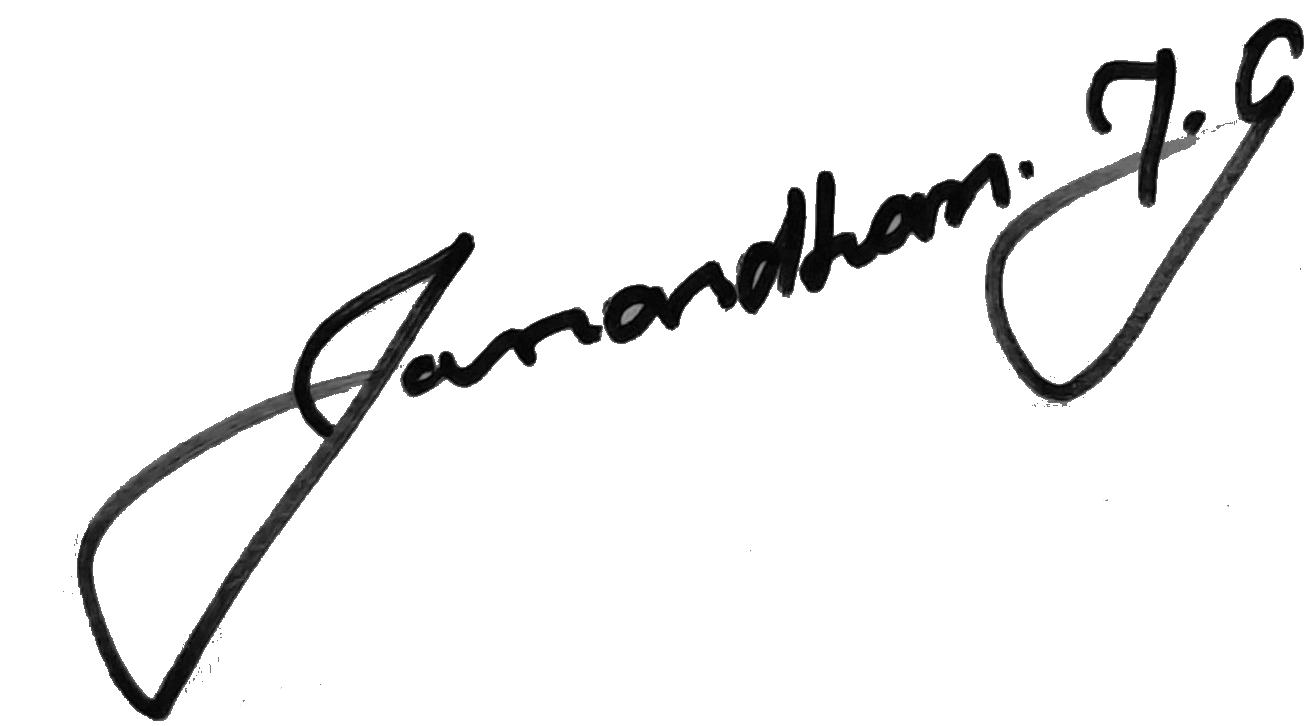 Janandham. J. G